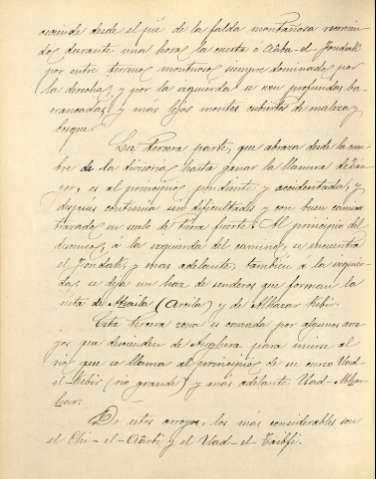 asciende desde el pié de la falda montañosa recorrien-
dos durante una hora la cuesta ó Aàba-el-Fondak
por entre terreno montuoso, siempre dominado por
la derecha, y por la izquierda se ven profundas ba-
rrancadas y más lejos montes cubiertos de maleza y
bosque.
La tercera parte, que abraza desde la cum-
bre de la divisoria hasta ganar la llanura de Tán-
ger, es al principio pendiente y accidentada, y
después continúa sin dificultades y con buen camino
trazado en suelo de tierra fuerte. Al principio del
descenso, á la izquierda del camino, se encuentra
el Fondak, y más adelante, también á la izquier-
da, se deja un haz de senderos que forman la
ruta de Azaila (Arcila) y de Alkázar Kebir.
Esta tercera zona es cruzada por algunos arro-
yos que descienden de para unirse al
río que se llama al principio de su curso Uad-
el-Kebir (río grande) y más adelante Uad-
De estos arroyos, los más considerables son
el y el Uad-el-